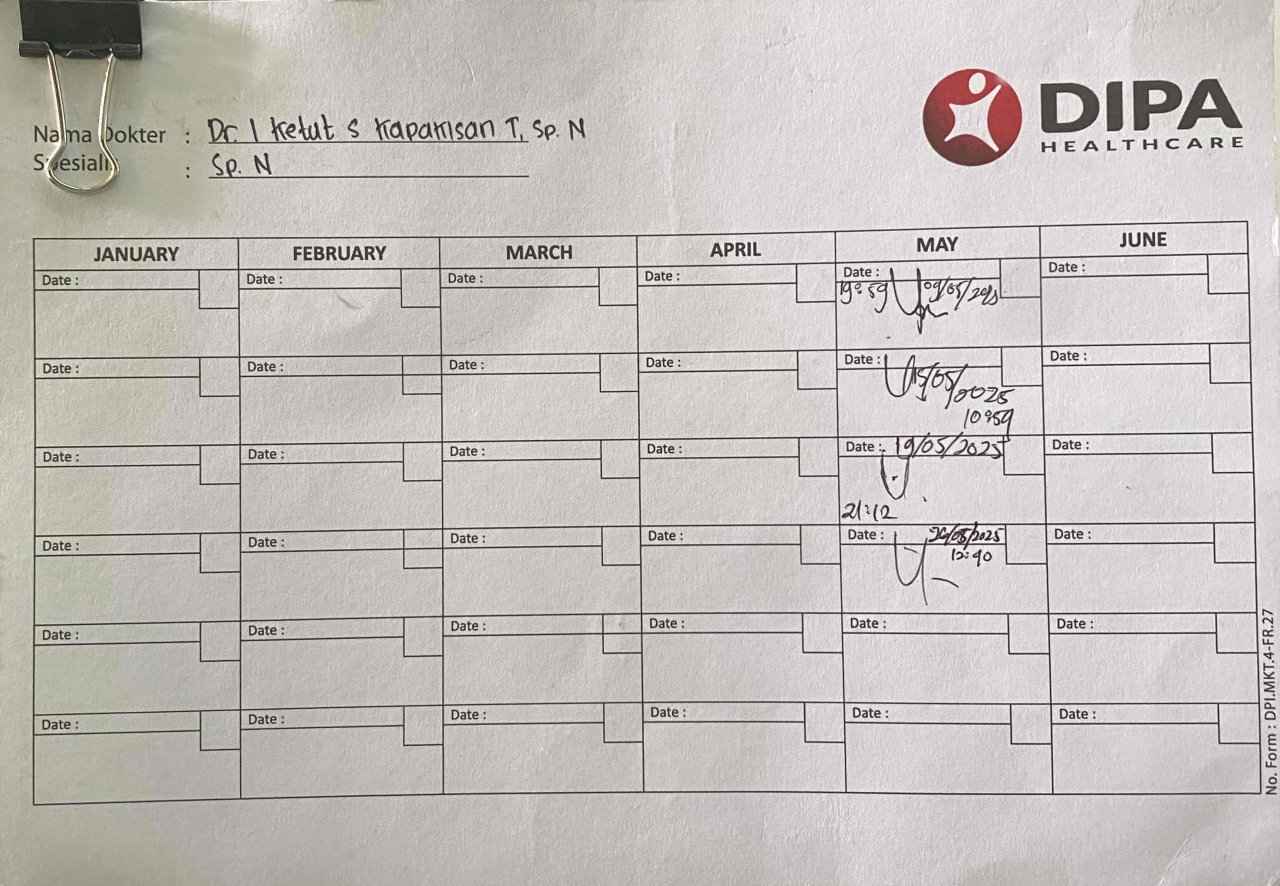 DIPA
HEALTHCARE
Nama Dokter : Dr. I Ketut S Kapamsan T, Sp. N
: Sp. N
JANUARY FEBRUARY MARCH APRIL MAY JUNE
Date : Date : Date : Date : Date : Date :
19:59 09/05/2025
Date : Date : Date : Date : Date : Date :
15/05/2025
10:59
Date : Date : Date : Date : Date : 19/05/2025 Date :
21:12
Date : Date : Date : Date : Date : /05/2025 Date :
12:40
Date : Date : Date : Date : Date : Date :
Date : Date : Date : Date : Date : Date :
No. Form : DPI.MKT.4-FR.27